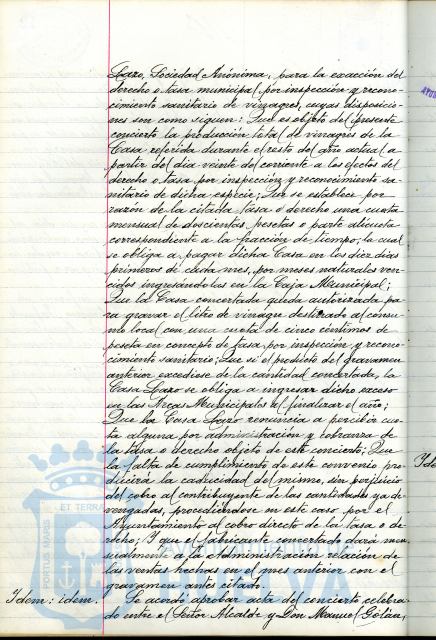 Lazo, Sociedad Anónima, para la exacción del
derecho o tasa municipal, por inspección y recono-
cimiento sanitario de vinagres, cuyas disposicio-
nes son como siguen: Que es objeto del presente
concierto la producción total de vinagres de la
Casa referida durante el resto del año actual a
partir del día veinte del corriente a los efectos del
derecho o tasa por inspección y reconocimiento sa-
nitario de dicha especie; Que se establece por
razón de la citada tasa o derecho una cuota
mensual de doscientas pesetas o parte alícuota
correspondiente a la fracción de tiempo; la cual
se obliga a pagar dicha Casa en los diez días
primeros de cada mes, por meses naturales ven-
cidos ingresándolas en la Caja Municipal;
Que la Casa concertada queda autorizada pa-
ra gravar el litro de vinagre destinado al consu-
mo local con una cuota de cinco céntimos de
peseta en concepto de tasa por inspección y recono-
cimiento sanitario; Que si el producto del gravamen
anterior excediese de la cantidad concertada, la
Casa Lazo se obliga a ingresar dicho exceso
en las Arcas Municipales al finalizar el año;
Que la Casa Lazo renuncia a percibir cuo-
ta alguna por administración y cobranza de
la tasa o derecho objeto de este concierto; Que
la falta de cumplimiento de este convenio pro-
ducirá la caducidad del mismo, sin perjuicio
del cobro al contribuyente de las cantidades ya de-
vengadas, procediéndose en este caso por el
Ayuntamiento al cobro directo de la tasa o de-
recho; Y que el fabricante concertado dará men-
sualmente a la Administración relación de
las ventas hechas en el mes anterior con el
gravamen antes citado.
Idem: idem. Se acordó aprobar acta del concierto celebra-
do entre el Señor Alcalde y Don Manuel Gólán,
ET TERRA
PORTUS MARIS